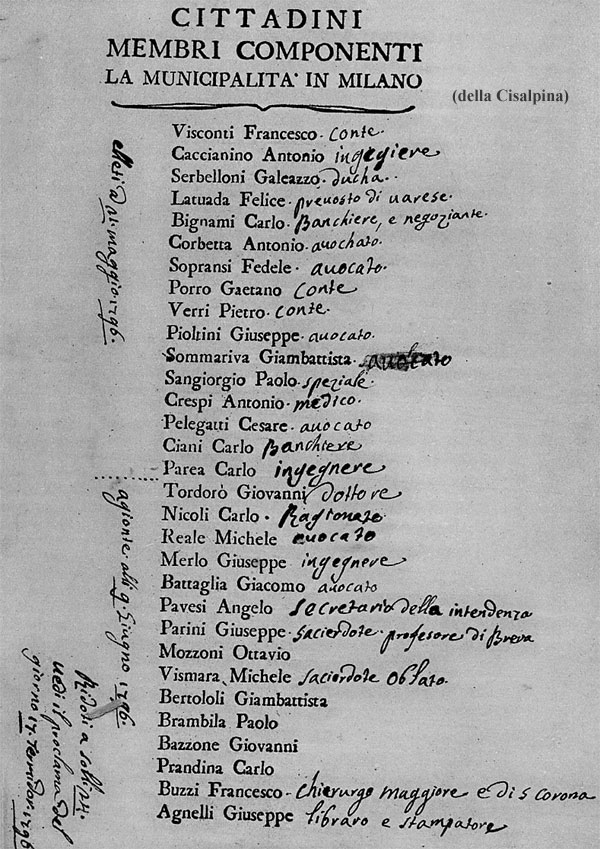 CITTADINI
MEMBRI COMPONENTI
LA MUNICIPALITA' IN MILANO
(della Cisalpina)
Visconti Francesco. Conte.
Caccianino Antonio ingegiere
Serbelloni Galeazzo. ducha.
Latuada Felice. prevosto di varese.
Bignami Carlo. Banchiere, e negoziante.
Corbetta Antonio. avochato.
Sopransi Fedele. avocato.
Porro Gaetano Conte
Verri Pietro. Conte.
Pioltini Giuseppe. avocato.
Sommariva Giambattista. avocato
Sangiorgio Paolo. speziale.
Crespi Antonio. medico.
Pelegatti Cesare. avocato
Ciani Carlo Banchiere
Parea Carlo ingegnere
Tordorò Giovanni dottore
Nicoli Carlo. Ragionato
Reale Michele avocato
Merlo Giuseppe ingegnere
Battaglia Giacomo avocato
Pavesi Angelo secretario della intendenza
Parini Giuseppe. sacierdote. profesore di Brera
Mozzoni Ottavio
Vismara Michele sacierdote Oblato.
Bertololi Giambattista
Brambila Paolo
Bazzone Giovanni
Prandina Carlo
Buzzi Francesco. Chierurgo maggiore e di S Corona
Agnelli Giuseppe libraro e stampatore
maggio. 1796.
agionte. alli 9. Giugno 1796.
Ridoti a soli
vedi il proclama del
giorno 17. Termidor. 1796